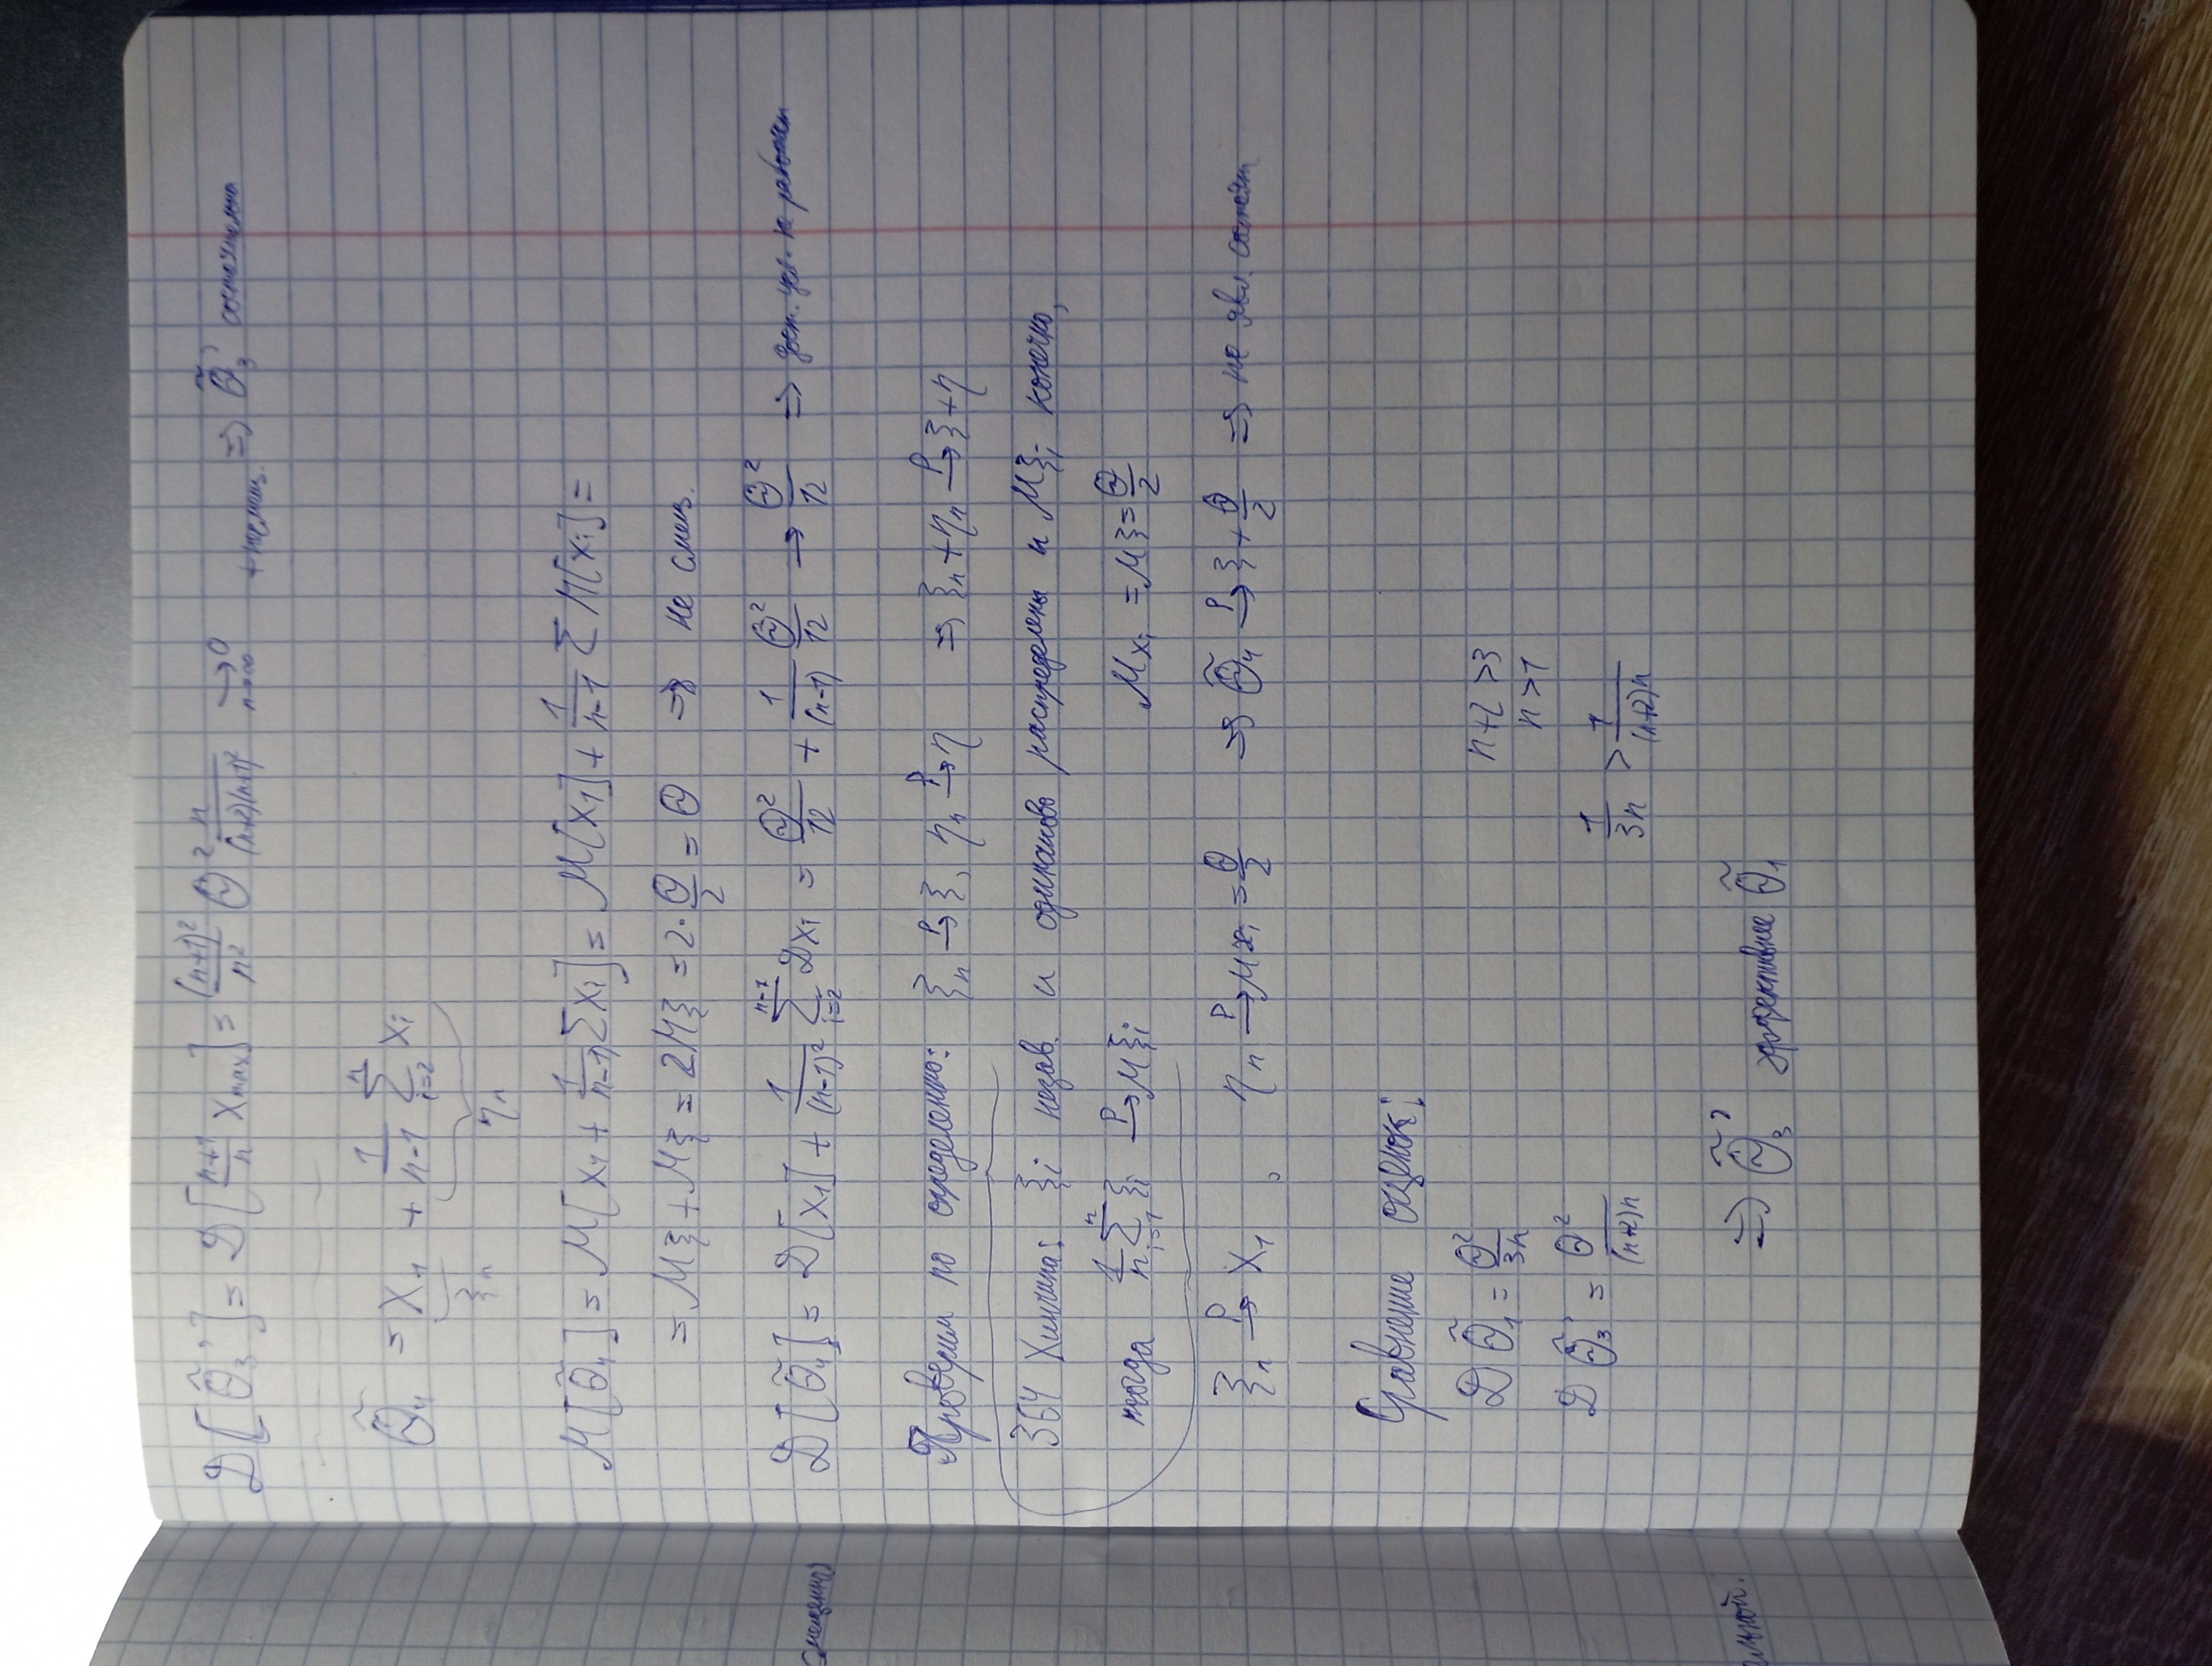 D[Θ̃₃'] = D[(n+1)/n X_max] = (n+1)²/n² Θ² n/((n+2)(n+1)²) →_{n→∞} 0 + несмещ. ⇒ Θ̃₃' состоятельна
Θ̃₄ = X₁ + 1/(n-1) Σ_{i=2}^{n} x_i
ξ_n η_n
M[Θ̃₄] = M[X₁ + 1/(n-1) Σ x_i] = M[X₁] + 1/(n-1) Σ M[x_i] =
= Mξ + Mξ = 2Mξ = 2·Θ/2 = Θ ⇒ не смещ.
смещенная
D[Θ̃₄] = D[x₁] + 1/(n-1)² Σ_{i=2}^{n-1} Dx_i = Θ²/12 + 1/(n-1) Θ²/12 → Θ²/12 ⇒ дост. усл. не работает
Проверим по определению: ξ_n →^P ξ, η_n →^P η ⇒ ξ_n + η_n →^P ξ + η
ЗБЧ Хинчина: ξ_i незав. и одинаково распределены и Mξ_i конечно,
тогда 1/n Σ_{i=1}^{n} ξ_i →^P Mξ_i Mx_i = Mξ = Θ/2
ξ_n →^P X₁, η_n →^P Mx_i = Θ/2 ⇒ Θ̃₄ →^P ξ + Θ/2 ⇒ не явл. состоят
Сравнение оценок:
D Θ̃₁ = Θ²/3n
n+2 > 3
n > 1
D Θ̃₃' = Θ²/((n+2)n)
1/3n > 1/((n+2)n)
⇒ Θ̃₃' эффективнее Θ̃₁